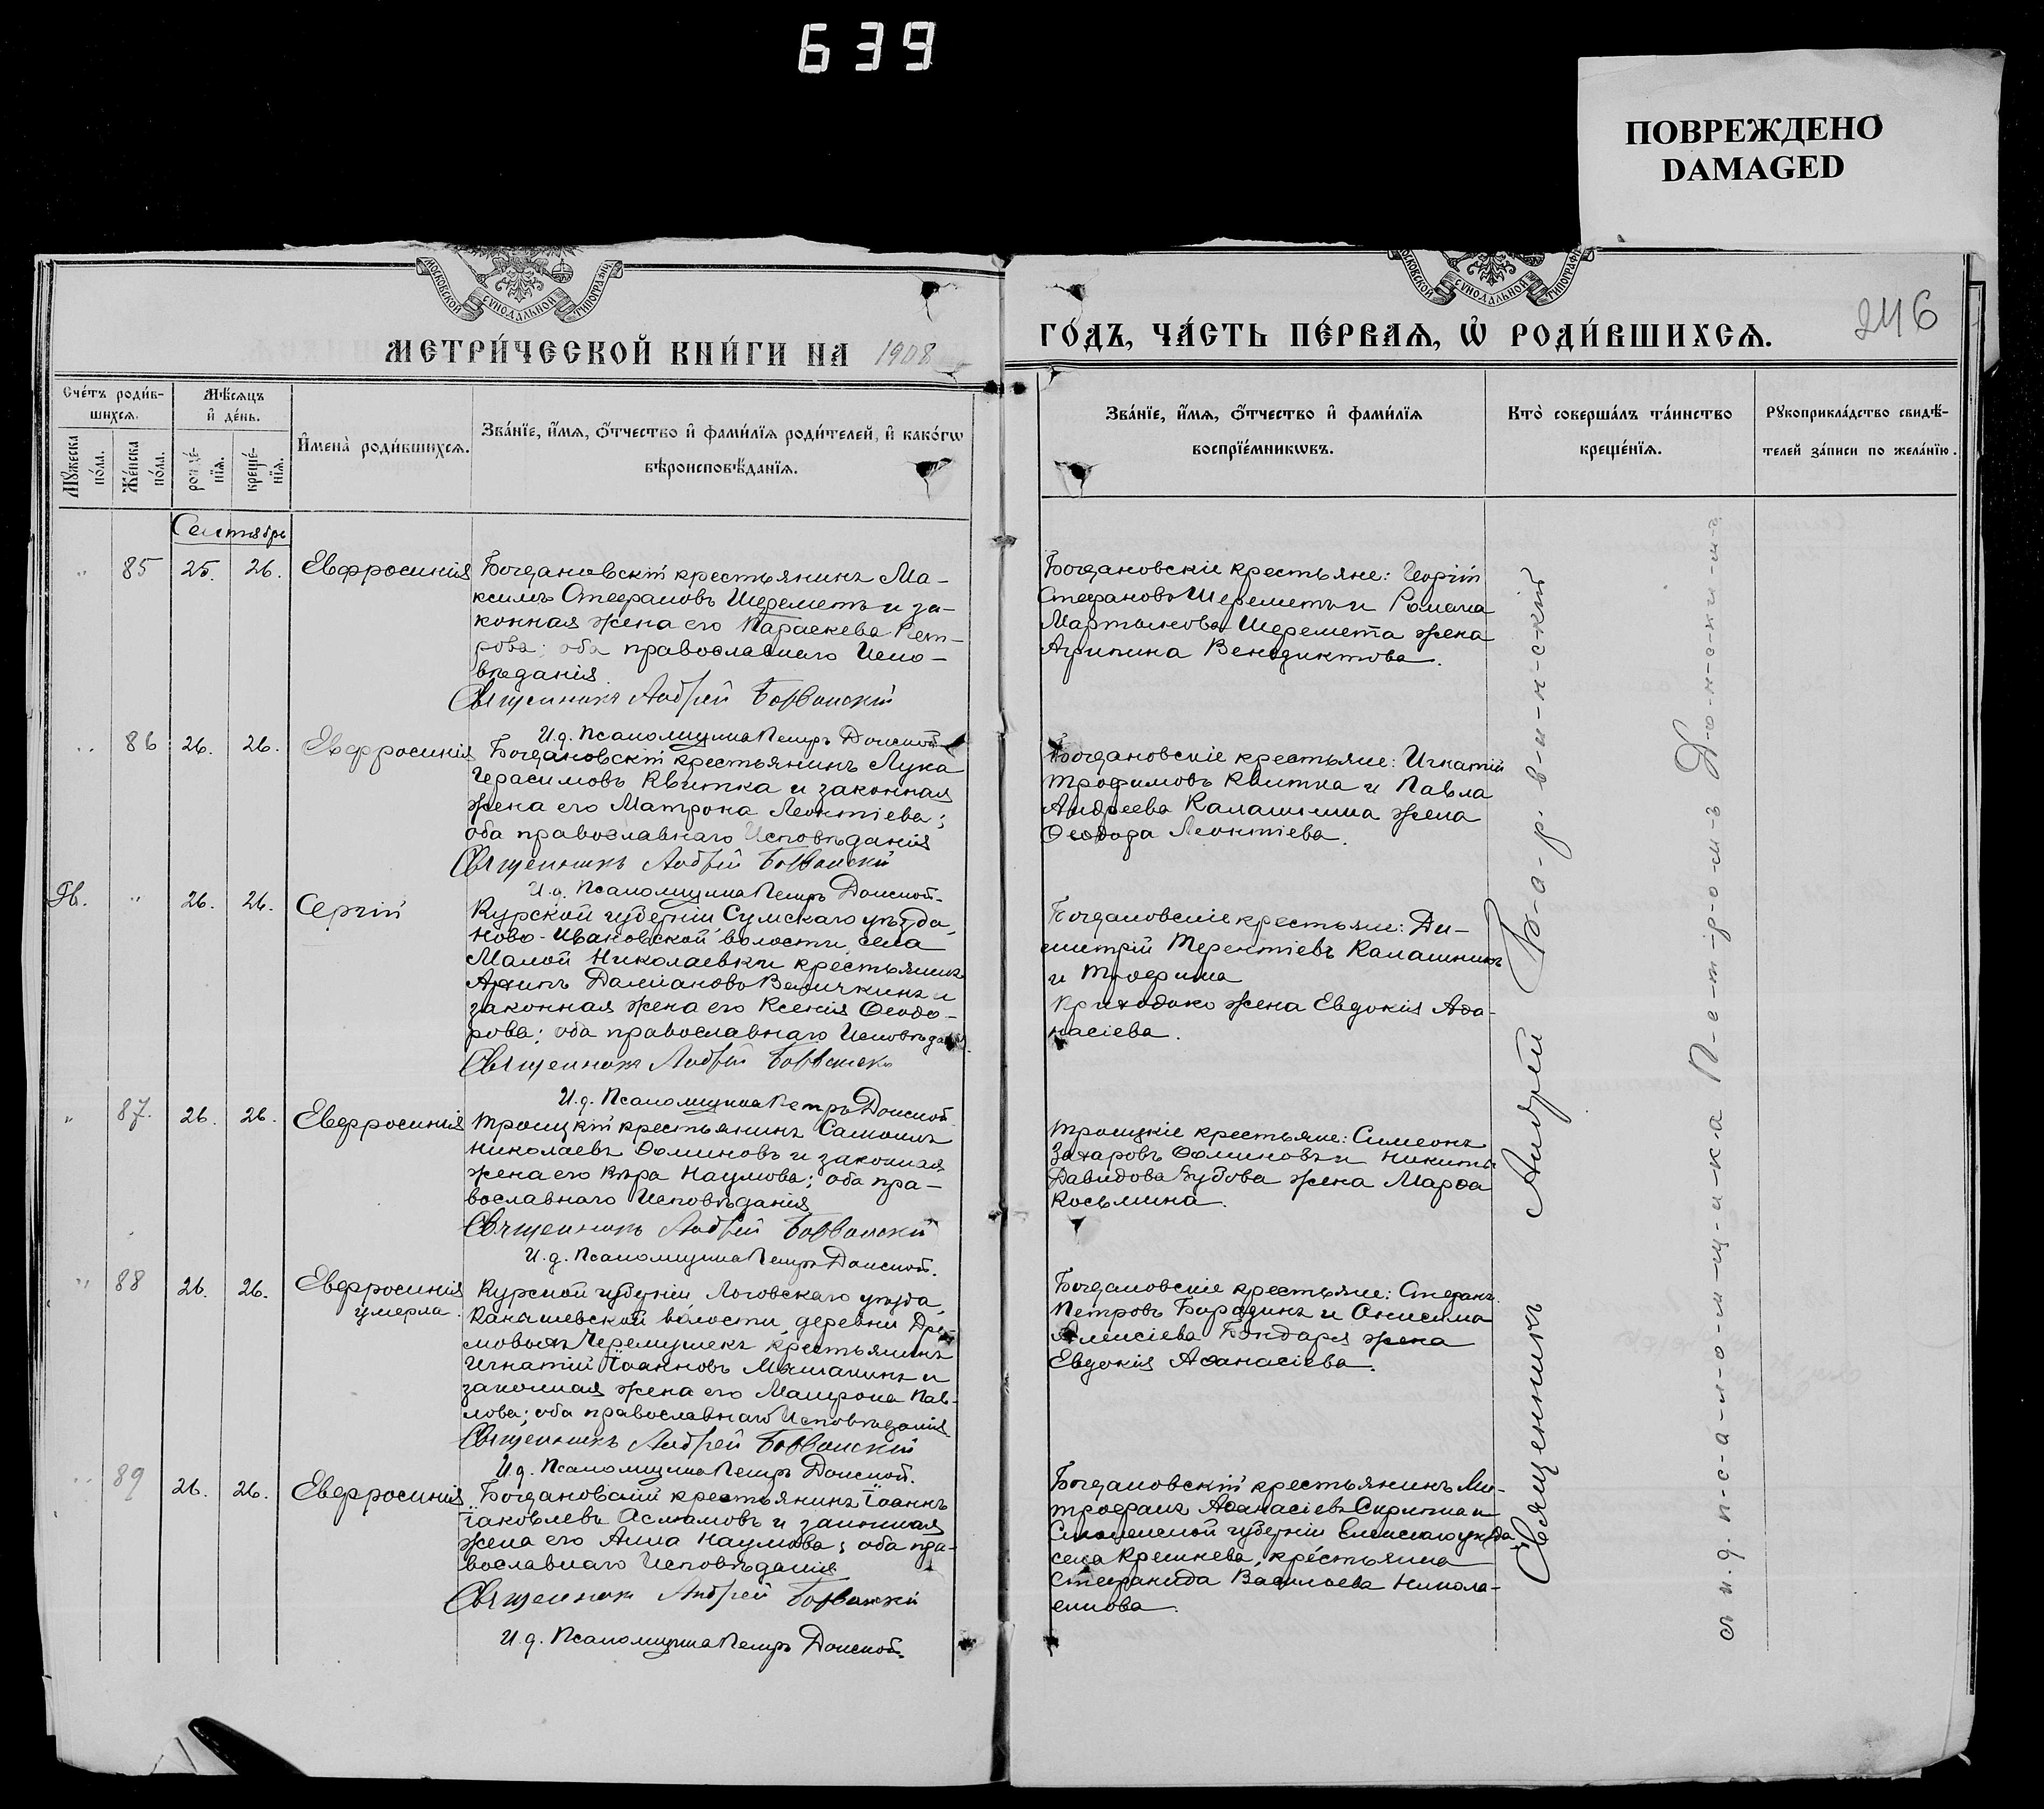 639
ПОВРЕЖДЕНО
DAMAGED
МОСКОВСКОЙ СѴНОДАЛЬНОЙ ТИПОГРАФІИ
МОСКОВСКОЙ СѴНОДАЛЬНОЙ ТИПОГРАФІИ
МЕТРИ́ЧЕСКОЙ КНИ́ГИ НА 1908
ГО́ДЪ, ЧА́СТЬ ПЕ́РВАѦ, Ѡ҆ РОДИ́ВШИХСѦ.
246
Сче́тъ роди́в-
шихсѧ.
Мѣ́сѧцъ
и҆ де́нь.
Мꙋ́жеска
по́ла.
Же́нска
по́ла.
рожде́-
нїѧ.
креще́-
нїѧ.
И҆мена̀ роди́вшихсѧ.
Зва́нїе, и҆́мѧ, ѻ҆́тчество и҆ фами́лїѧ роди́телей, и҆ како́гѡ
вѣроисповѣ́данїѧ.
Зва́нїе, и҆́мѧ, ѻ҆́тчество и҆ фами́лїѧ
воспрїе́мникѡвъ.
Кто̀ соверша́лъ та́инство
креще́нїѧ.
Рꙋкоприкла́дство свидѣ́-
телей за́писи по жела́нїю.
Сентябрь
" 85 25. 26. Евфросинія
Богдановскій крестьянинъ Ма-
ксимъ Стефановъ Шереметъ и за-
конная жена его Параскева Пет-
рова; оба православнаго Испо-
вѣданія.
Священникъ Андрей Барвинскій
И.д. Псаломщика Петръ Донской
Богдановскіе крестьяне: Георгій
Стефановъ Шереметъ и Романа
Мартынова Шеремета жена
Агрипина Венедиктова.
" 86 26. 26. Евфросинія
Богдановскій крестьянинъ Лука
Герасимовъ Квитка и законная
жена его Матрона Леонтіева;
оба православнаго Исповѣданія
Священникъ Андрей Барвинскій
И.д. Псаломщика Петръ Донской.
Богдановскіе крестьяне: Игнатій
Трофимовъ Квитка и Павла
Андреева Калашника жена
Ѳеодора Леонтіева.
" 26. 26. Сергій
Курской губерніи Сумскаго уѣзда,
Ново-Ивановской волости, села
Малой Николаевки крестьянинъ
Архипъ Даміановъ Величкинъ и
законная жена его Ксенія Ѳеодо-
рова; оба православнаго Исповѣданія
Священникъ Андрей Барвинскій
И.д. Псаломщика Петръ Донской
Богдановскіе крестьяне: Ди-
митрій Терентіевъ Калашникъ
и Трофима
Приходько жена Евдокія Аѳа-
насіева.
" 87. 26. 26. Евфросинія
Троицкій крестьянинъ Самоилъ
Николаевъ Ѳоминовъ и законная
жена его Вѣра Наумова; оба пра-
вославнаго Исповѣданія
Священникъ Андрей Барвинскій
И.д. Псаломщика Петръ Донской.
Троицкіе крестьяне: Симеонъ
Захаровъ Ѳоминовъ и Никиты
Давидова Зубова жена Марѳа
Косьмина.
" 88 26. 26. Евфросинія
умерла.
Курской губерніи Льговскаго уѣзда,
Канышевской волости, деревни
Черемушекъ крестьянинъ
Игнатій Іоанновъ и
законная жена его Матрона Пав-
лова; оба православнаго Исповѣданія
Священникъ Андрей Барвинскій
И.д. Псаломщика Петръ Донской.
Богдановскіе крестьяне: Стефанъ
Петровъ Бородинъ и Онисима
Алексіева Бондаря жена
Евдокія Аѳанасіева.
" 89 26. 26. Евфросинія
Богдановскій крестьянинъ Іоаннъ
Іаковлевъ Асламовъ и законная
жена его Анна Наумова; оба пра-
вославнаго Исповѣданія
Священникъ Андрей Барвинскій
И.д. Псаломщика Петръ Донской.
Богдановскій крестьянинъ Ми-
трофанъ Аѳанасіевъ Скрипка и
Смоленской губерніи Ельнскаго уѣзда,
села Крешнева, крестьянка
Стефанида Васильева Никола-
енкова.
Священникъ Андрей Б-а-р-в-и-н-с-кій
съ и. д. п-с-а-л-о-м-щ-и-к-а П-е-т-р-о-м-ъ Д-о-н-с-к-и-м-ъ